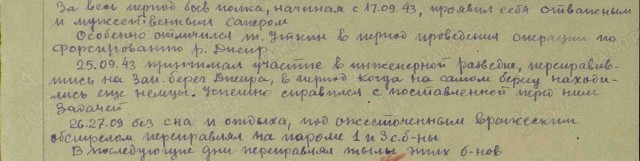 За весь период боев полка, начиная с 17.09.43, проявил себя отважным
и мужественным сапером
Особенно отличился т. Уткин в период проведения операции по
форсированию р. Днепр.
25.09.43 принимал участие в инженерной разведке, переправив-
шись на зап. берег Днепра, в период когда на самом берегу находи-
лись еще немцы. Успешно справился с поставленной перед ним
задачей
26-27.09 без сна и отдыха, под ожесточенным вражеским
обстрелом переправлял на пароме 1 и 3 с.б-ны
В последующие дни переправлял тылы этих б-нов